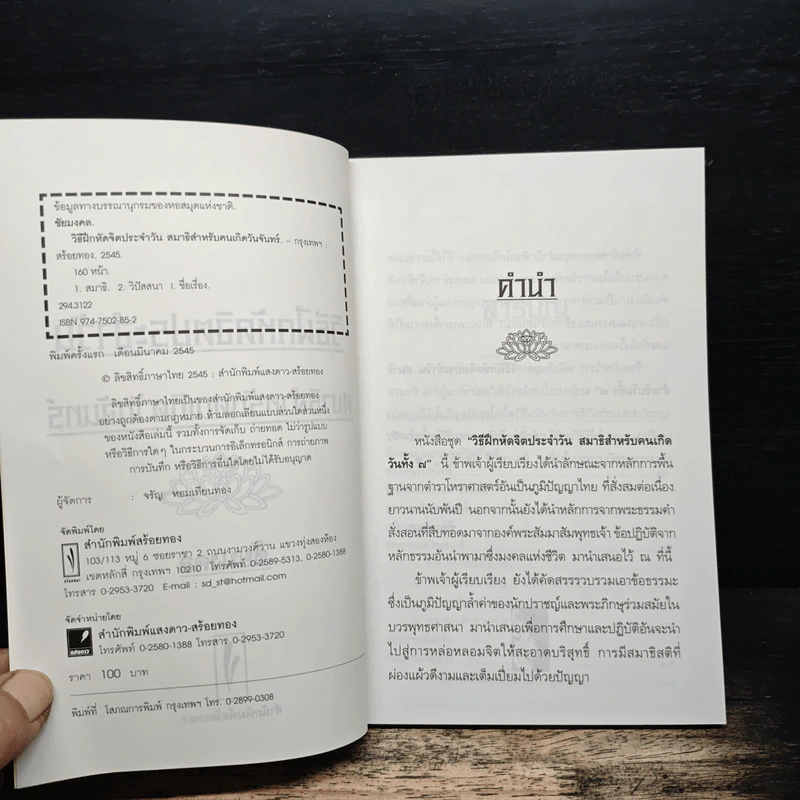 ข้อมูลทางบรรณานุกรมของหอสมุดแห่งชาติ.
ชัยมงคล.
วิธีฝึกหัดจิตประจำวัน สมาธิสำหรับคนเกิดวันจันทร์. – กรุงเทพฯ :
สร้อยทอง, 2545.
160 หน้า.
1. สมาธิ. 2. วิปัสสนา I. ชื่อเรื่อง.
294.3122
ISBN 974-7502-85-2
พิมพ์ครั้งแรก เดือนมีนาคม 2545
© ลิขสิทธิ์ภาษาไทย 2545 : สำนักพิมพ์แสงดาว-สร้อยทอง
ลิขสิทธิ์ภาษาไทยเป็นของสำนักพิมพ์แสงดาว-สร้อยทอง
อย่างถูกต้องตามกฎหมาย ห้ามลอกเลียนแบบส่วนใดส่วนหนึ่ง
ของหนังสือเล่มนี้ รวมทั้งการจัดเก็บ ถ่ายทอด ไม่ว่ารูปแบบ
หรือวิธีการใดๆ ในกระบวนการอิเล็กทรอนิกส์ การถ่ายภาพ
การบันทึก หรือวิธีการอื่นใดโดยไม่ได้รับอนุญาต
ผู้จัดการ : จรัญ หอมเทียนทอง
จัดพิมพ์โดย
สำนักพิมพ์สร้อยทอง
103/113 หมู่ 6 ซอยราชา 2 ถนนงามวงศ์วาน แขวงทุ่งสองห้อง
เขตหลักสี่ กรุงเทพฯ 10210 โทรศัพท์ 0-2589-5313, 0-2580-1388
โทรสาร 0-2953-3720 E-mail : sd_st@hotmail.com
จัดจำหน่ายโดย
สำนักพิมพ์แสงดาว-สร้อยทอง
โทรศัพท์ 0-2580-1388 โทรสาร 0-2953-3720
แสงดาว
ราคา 100 บาท
พิมพ์ที่ โสภณการพิมพ์ กรุงเทพฯ โทร. 0-2899-0308
คำนำ
หนังสือชุด "วิธีฝึกหัดจิตประจำวัน สมาธิสำหรับคนเกิด
วันทั้ง ๗" นี้ ข้าพเจ้าผู้เรียบเรียงได้นำลักษณะจากหลักการพื้น
ฐานจากตำราโหราศาสตร์อันเป็นภูมิปัญญาไทย ที่สั่งสมต่อเนื่อง
ยาวนานนับพันปี นอกจากนั้นยังได้นำหลักการจากพระธรรมคำ
สั่งสอนที่สืบทอดมาจากองค์พระสัมมาสัมพุทธเจ้า ข้อปฏิบัติจาก
หลักธรรมอันนำพามาซึ่งมงคลแห่งชีวิต มานำเสนอไว้ ณ ที่นี้
ข้าพเจ้าผู้เรียบเรียง ยังได้คัดสรรรวบรวมเอาข้อธรรมะ
ซึ่งเป็นภูมิปัญญาล้ำค่าของนักปราชญ์และพระภิกษุร่วมสมัยใน
บวรพุทธศาสนา มานำเสนอเพื่อการศึกษาและปฏิบัติอันจะนำ
ไปสู่การหล่อหลอมจิตให้สะอาดบริสุทธิ์ การมีสมาธิสติที่
ผ่องแผ้วดีงามและเต็มเปี่ยมไปด้วยปัญญา